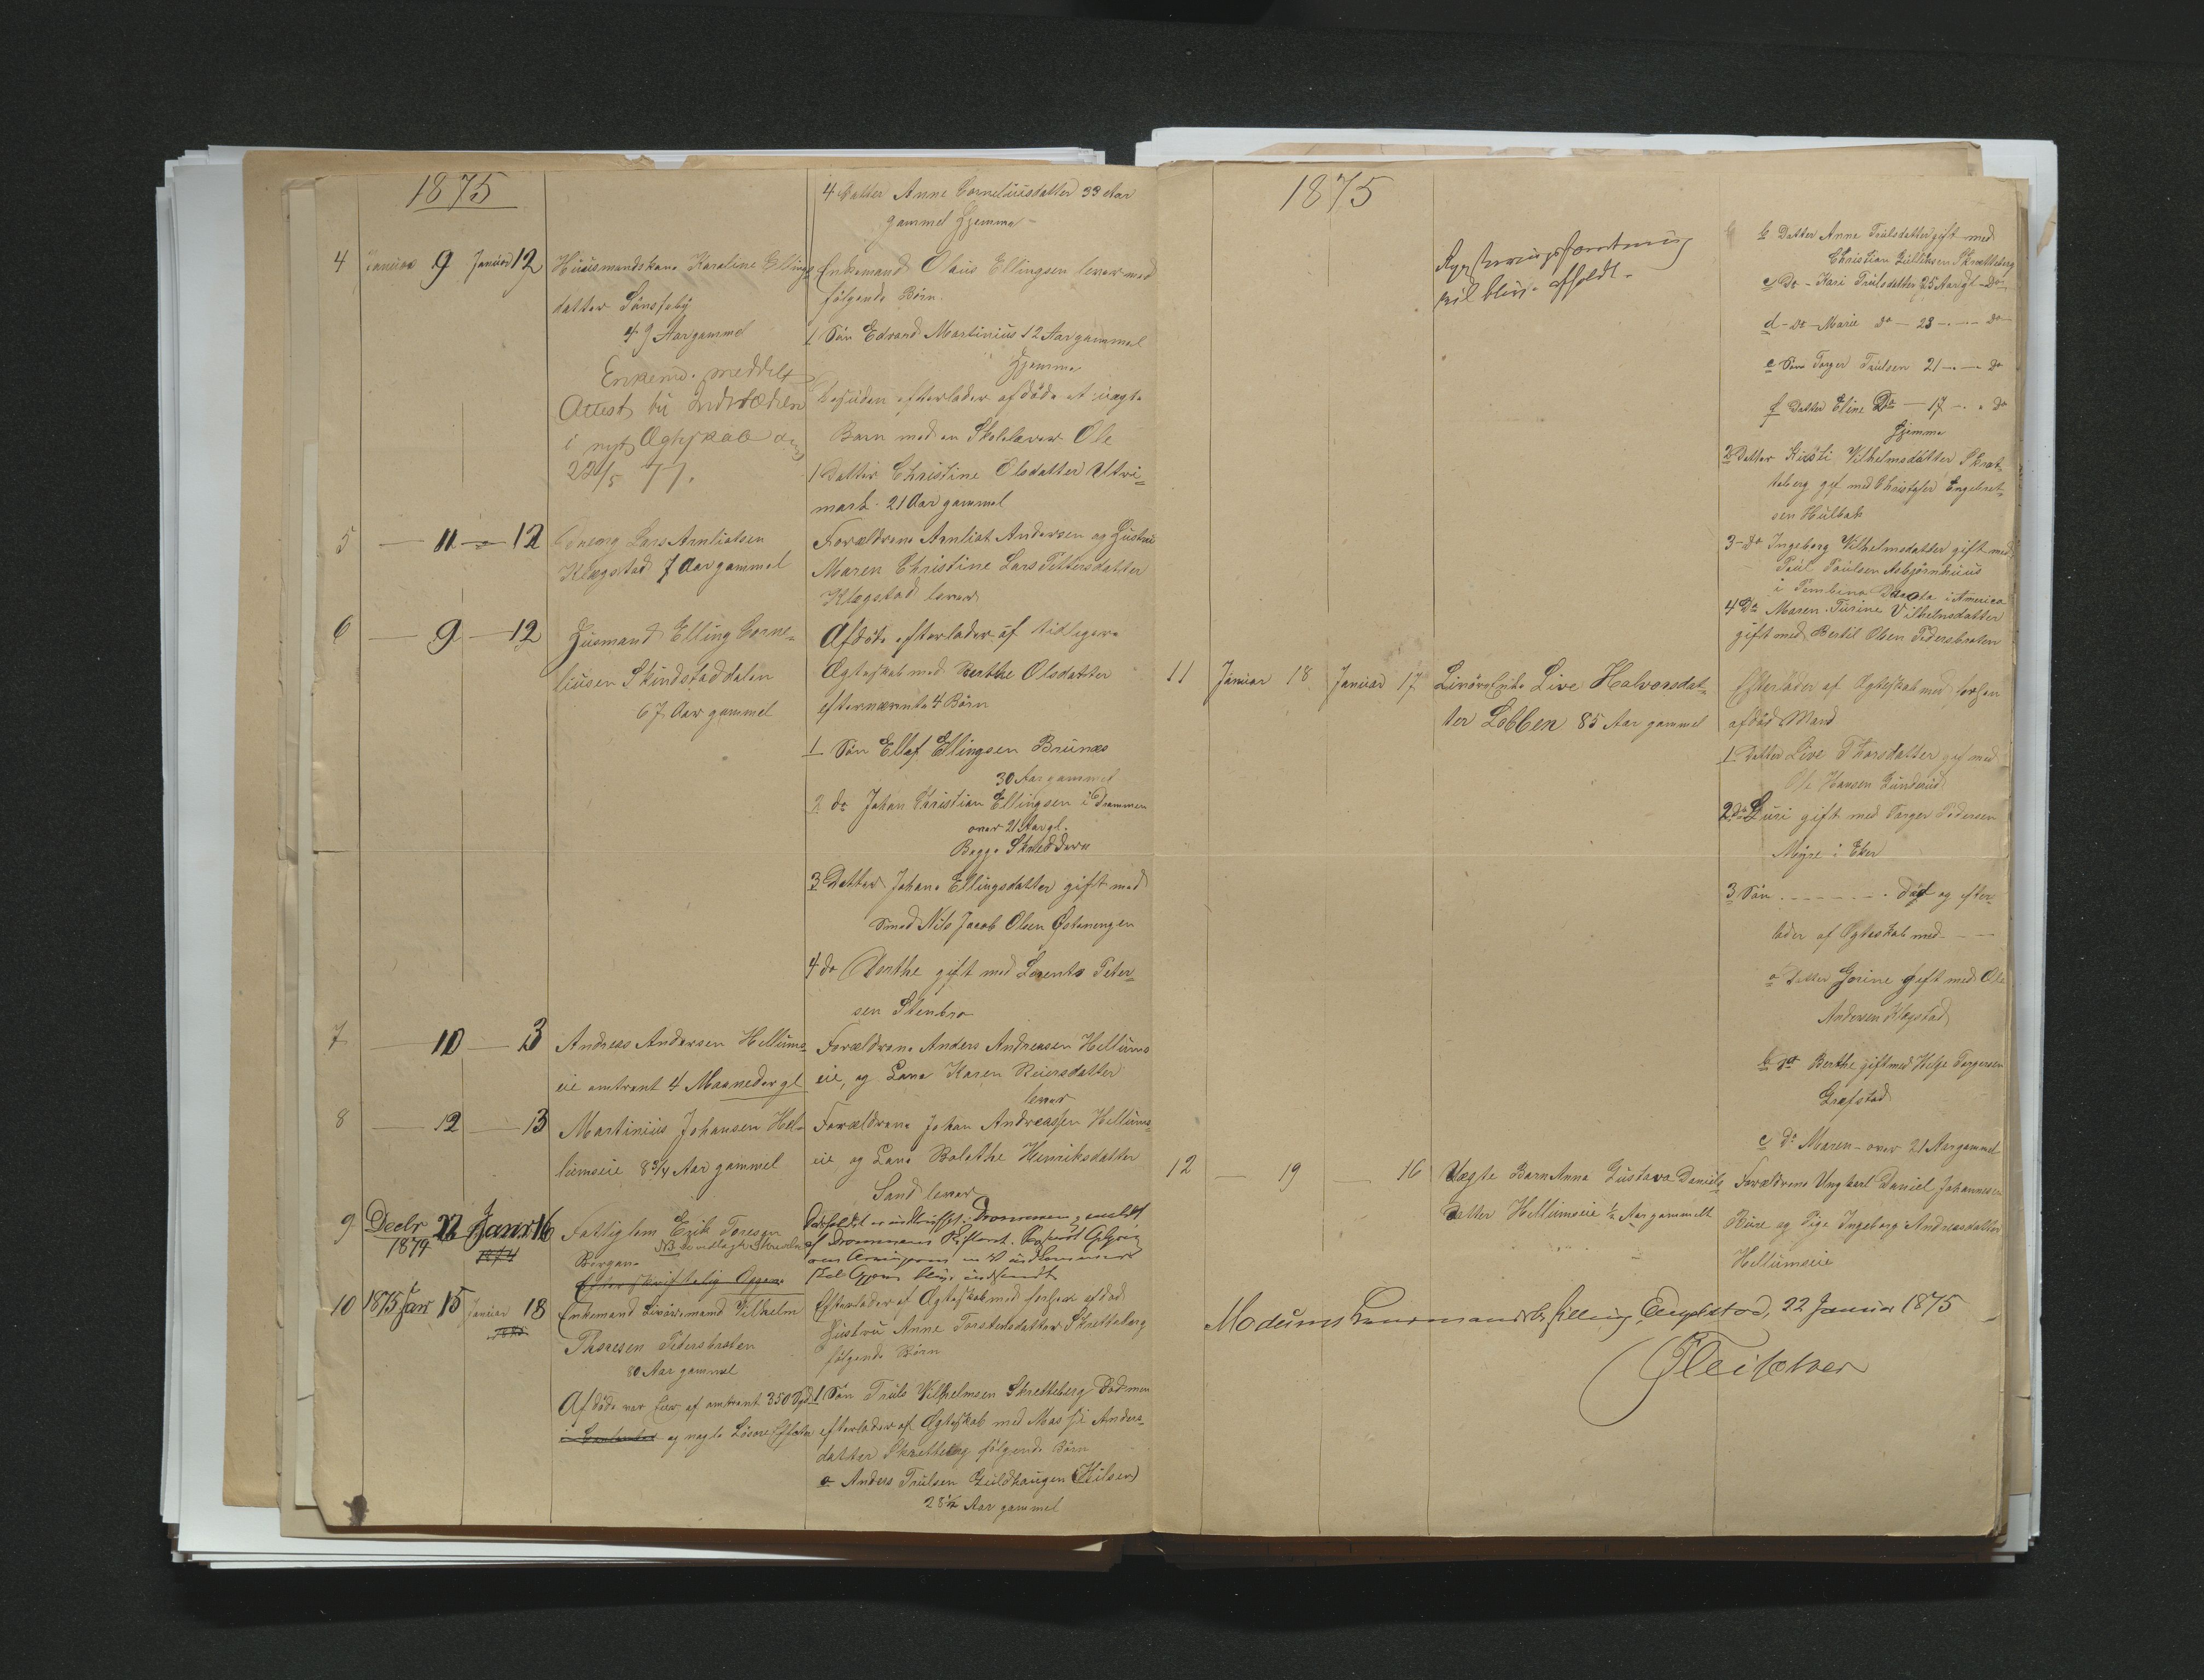 1875
4 Datter Anne Corneliusdatter 33 Aar
gammel Hjemme
4 Januar 9 Januar 12
Huusmandskone Karoline Ellings
datter Sønsteby
49 Aar gammel
Enkemd. meddelt
Attest til Indtrædelse
i nyt Ægteskab
22/5 77.
Enkemand Olaus Ellingsen lever med
følgende Børn
1 Søn Edvard Martinius 12 Aar gammel
Hjemme
Desuden efterlader afdøde et uægte
Barn med en Skolelærer Ole
1 Datter Christine Olsdatter
mark 21 Aar gammel
5 — 11 — 12
Lars Arnliotsen
Klægstad 7 Aar gammel
Forældrene Arnliot Andersen og Hustru
Maren Christine Lars Pettersdatter
Klægstad lever
6 — 9 — 12
Husmand Elling Corne-
liusen Skindstaddalen
67 Aar gammel
Afdøde efterlader af tidligere
Ægteskab med Berthe Olsdatter
efternævnte 4 Børn
1 Søn Ellef Ellingsen Brunæs
30 Aar gammel
2 do Johan Christian Ellingsen i Drammen
over 21 Aar gl.
Begge Skreddere
3 Datter Johane Ellingsdatter gift med
Smed Nils Jacob Olsen Østenengen
4 do Berthe gift med Lorents Peter-
sen Stenbro
7 — 10 — 13
Andreas Andersen Hellums-
eie omtrent 4 Maaneder gl
Forældrene Anders Andreasen Hellums
eie, og Kone Karen Reiersdatter
lever
8 — 12 — 13
Martinius Johansen Hel-
lumseie 8 3/4 Aar gammel
Forældrene Johan Andreassen Hellums-
eie og Kone Bolethe Henriksdatter
Sand lever
9 Decbr 22 Januar 16
1874 1874
Fattiglem Erik Toresen
Bergan
Efter skriftelig
Drammen
10 1875 Jan 15 Januar 18
Enkemand Vilhelm
Thoresen Pedersbraten
80 Aar gammel
Afdøde var Eier af omtrent 350 Spd
og nogle Løsøre Effekter
Efterlader af Ægteskab med forhen afdød
Hustru Anne Torstensdatter Skretteberg
følgende Børn
1 Søn Truls Vilhelmsen Skretteberg Død men
efterlader af Ægteskab med Anders-
datter Skretteberg følgende Børn
a Anders Trulsen Guldhaugen
28 1/2 Aar gammel
1875
vil blive afholdt.
b Datter Anne Trulsdatter gift med
Christian Skretteberg
c Do - Kari Trulsdatter 25 Aar gl - Do
d - Do - Marie do - 23 - - do
e Søn Torger Trulsen 21 - - do
f Datter Eline Do - 17 - - do
Hjemme
2 Datter Kisti Vilhelmsdatter Skret-
teberg gif med Christofer Engebret-
sen Hulbak
3 - do Ingeborg Vilhelmsdatter gift med
Poul Poulsen Asbjørnhuus
i Pembina Dacota i America
4 Do Maren Turine Vilhelmsdatter
gift med Bertil Olsen Pedersbraten
11 Januar 18 Januar 17
Live Halvorsdat-
ter Lobben 85 Aar gammel
Efterlader af Ægteskab med forhen
afdød Mand
1 Datter Live Thorsdatter gif med
Ole Hansen
2 do Guri gift med Torger Pedersen
Myre i Eker
3 Søn - - - - - Død og efter-
lader af Ægteskab med - -
a Datter Gorine gift med Ole
Andersen Klegstad
b do Berthe gift med Helge Torgersen
Grefstad
c do Maren - over 21 Aar gammel
12 — 19 — 16
Uægte Barn Anna Gustava Daniels
datter Hellumseie 1/2 Aar gammelt
Forældrene Ungkarl Daniel Johannesen
og Pige Ingeborg Andreasdatter
Hellumseie
Modums Lensmandsbestilling, 22 Januar 1875